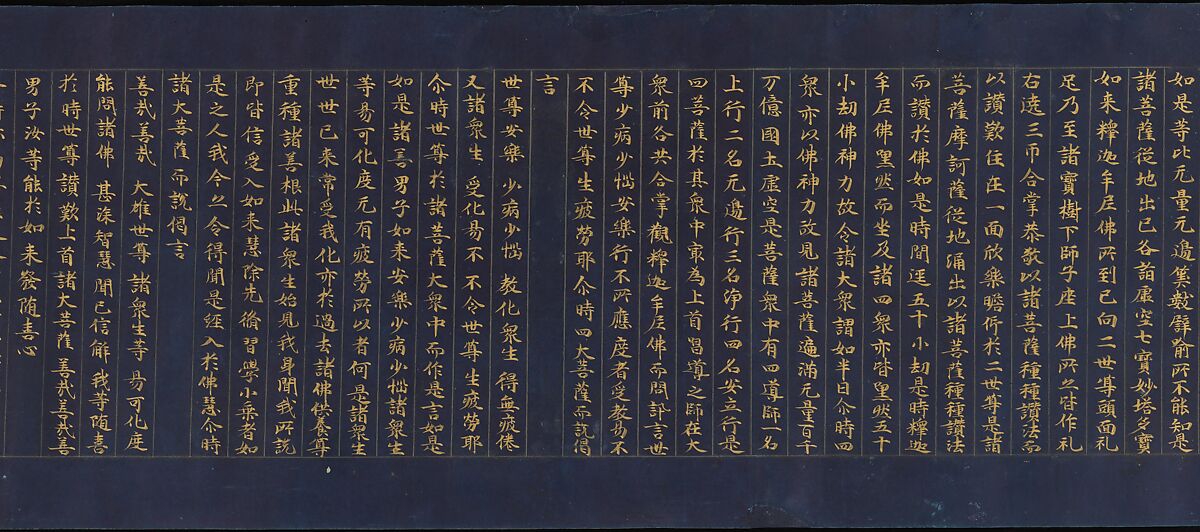 如是等比无量无邊筭數譬喻所不能知是
諸菩薩從地出已各詣虛空七寶妙塔多寶
如來釋迦牟尼佛所到已向二世尊頭面礼
足乃至諸寶樹下師子座上佛所亦皆作礼
右遶三帀合掌恭敬以諸菩薩種種讚法而
以讚歎住在一面欣樂瞻仰於二世尊是諸
菩薩摩訶薩從地涌出以諸菩薩種種讚法
而讚於佛如是時間逕五十小劫是時釋迦
牟尼佛黑然而坐及諸四衆亦皆黑然五十
小劫佛神力故令諸大衆謂如半日尒時四
衆亦以佛神力故見諸菩薩遍滿无量百千
万億國土虛空是菩薩衆中有四導師一名
上行二名无邊行三名淨行四名安立行是
四菩薩於其衆中㝡為上首唱導之師在大
衆前各共合掌觀釋迦牟尼佛而問訊言世
尊少病少惱安樂行不所應度者受教易不
不令世尊生疲勞耶尒時四大菩薩而說偈
言
世尊安樂 少病少惱 教化衆生 得無疲倦
又諸衆生 受化易不 不令世尊 生疲勞耶
尒時世尊於諸菩薩大衆中而作是言如是
如是諸善男子如來安樂少病少惱諸衆生
等易可化度无有疲勞所以者何是諸衆生
世世已來常受我化亦於過去諸佛供養尊
重種諸善根此諸衆生始見我身聞我所說
即皆信受入如來慧除先脩習學小乘者如
是之人我今亦令得聞是經入於佛慧尒時
諸大菩薩而說偈言
善哉善哉 大雄世尊 諸衆生等 易可化度
能問諸佛 甚深智慧 聞已信解 我等随喜
於時世尊讚歎上首諸大菩薩善哉善哉善
男子汝等能於如來發随喜心